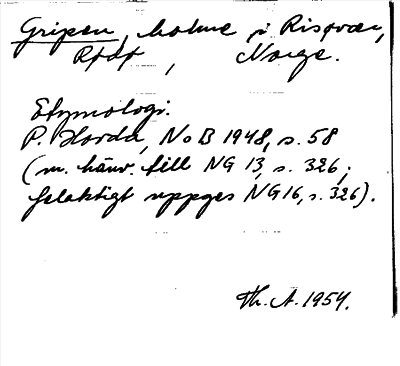 Gripen, holme i Risøvær,
Rødøy, Norge.
Etymologi:
P. Hovda, NoB 1948, s. 58
(m. hänv. till NG 13, s. 326;
felaktigt uppges NG 16, s. 326).
Th. A. 1954.